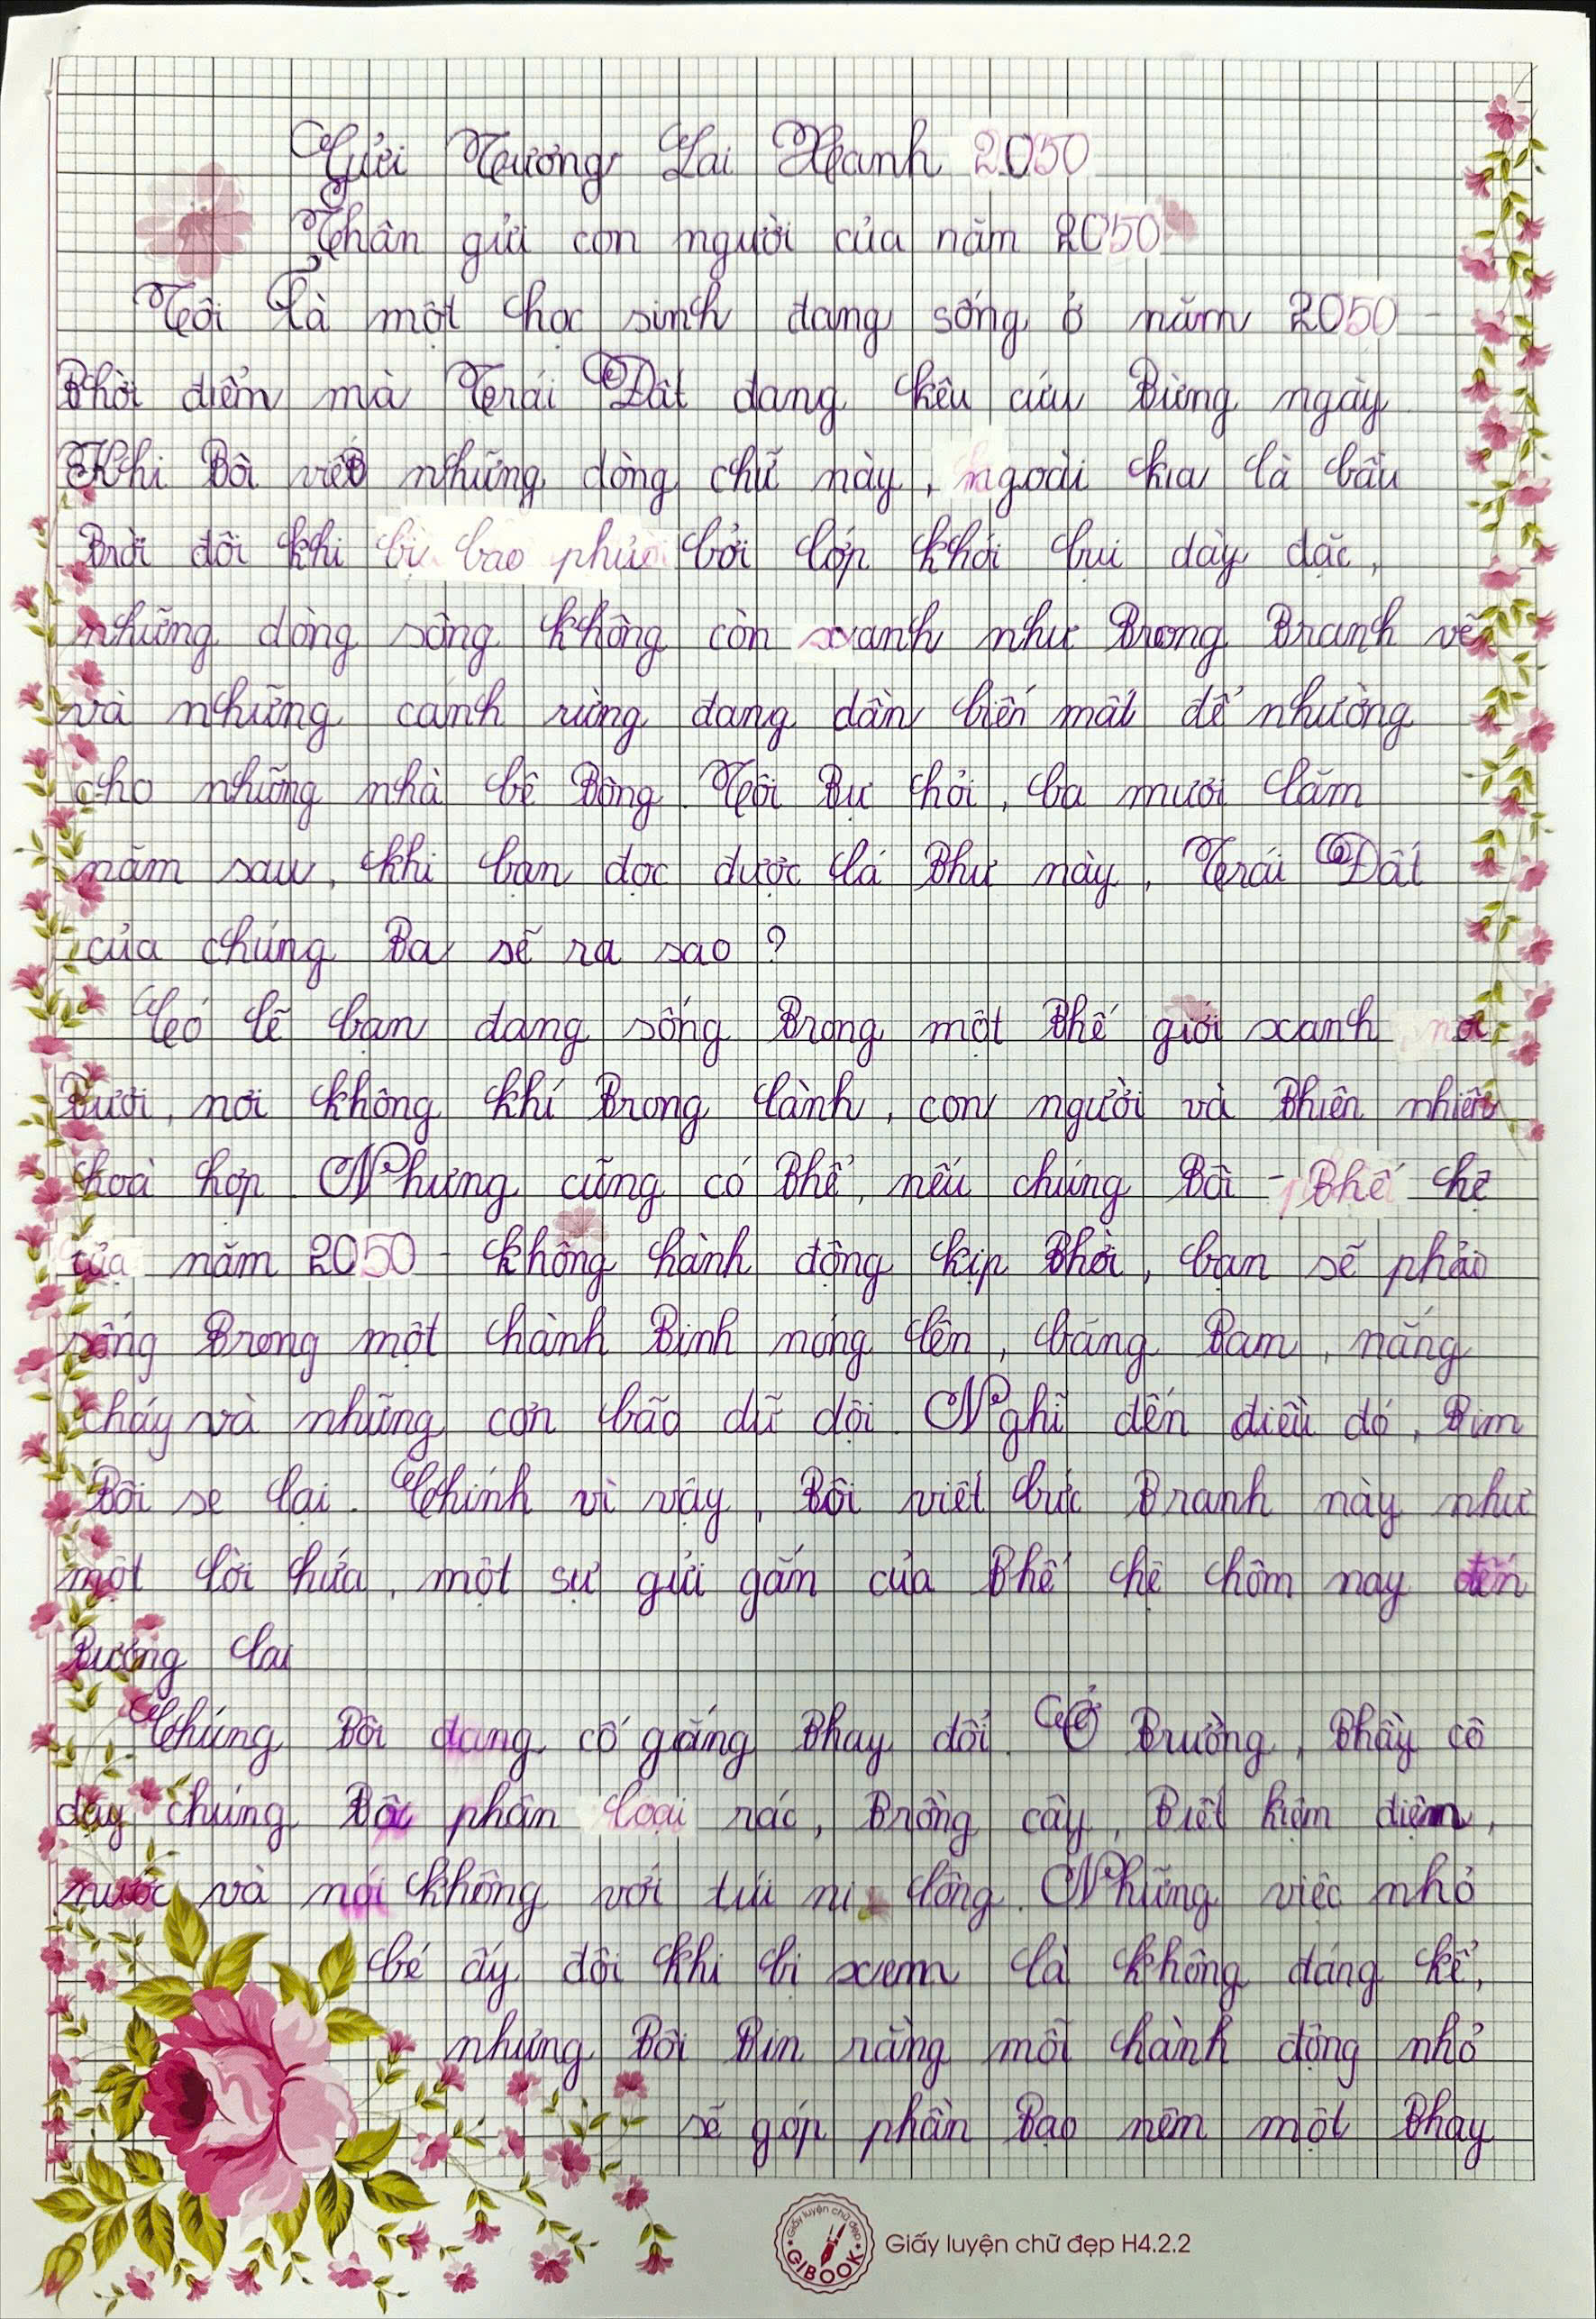 Gửi Tương Lai Xanh 2050
Thân gửi con người của năm 2050
Tôi là một học sinh đang sống ở năm 2050 -
thời điểm mà Trái Đất đang kêu cứu từng ngày
Khi tôi viết những dòng chữ này, ngoài kia là bầu
trời đôi khi bị bao phủ bởi lớp khói bụi dày đặc,
những dòng sông không còn xanh như trong tranh vẽ
và những cánh rừng đang dần biến mất để nhường
cho những nhà bê tông. Tôi tự hỏi, ba mươi lăm
năm sau, khi bạn đọc được lá thư này, Trái Đất
của chúng ta sẽ ra sao ?
Có lẽ bạn đang sống trong một thế giới xanh
tươi, nơi không khí trong lành, con người và thiên nhiên
hoà hợp. Nhưng cũng có thể, nếu chúng tôi - thế hệ
của năm 2050 - không hành động kịp thời, bạn sẽ phải
sống trong một hành tinh nóng lên, băng tan, nắng
cháy và những cơn bão dữ dội. Nghĩ đến điều đó, tim
tôi se lại. Chính vì vậy, tôi viết bức tranh này như
một lời hứa, một sự gửi gắm của thế hệ hôm nay đến
tương lai
Chúng tôi đang cố gắng thay đổi. Ở trường, thầy cô
dạy chúng tôi phân loại rác, trồng cây, tiết kiệm điện,
nước và nói không với túi ni lông. Những việc nhỏ
bé ấy đôi khi bị xem là không đáng kể,
nhưng tôi tin rằng mỗi hành động nhỏ
sẽ góp phần tạo nên một thay
Giấy luyện chữ đẹp
GIBOOK
Giấy luyện chữ đẹp H4.2.2